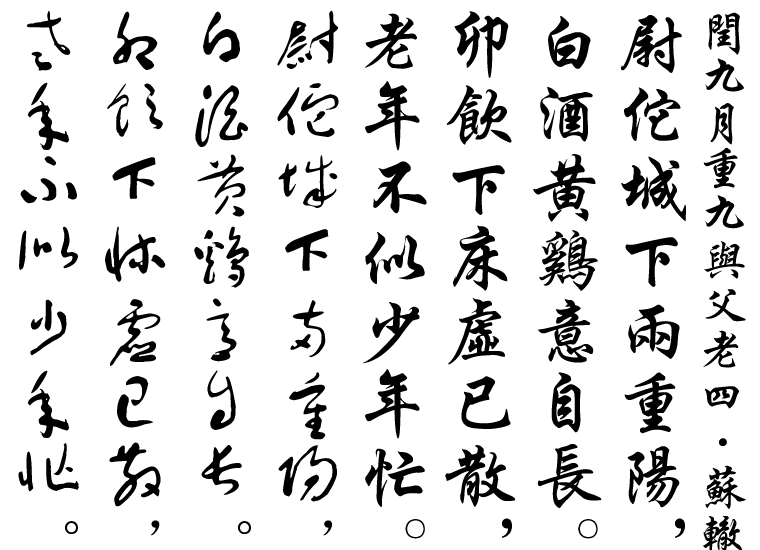 閏九月重九與父老四・蘇轍
尉佗城下兩重陽，
白酒黃鷄意自長。
卯飲下床虛已散，
老年不似少年忙。
尉佗城下兩重陽，
白酒黃鷄意自長。
卯飲下床虛已散，
老年不似少年忙。